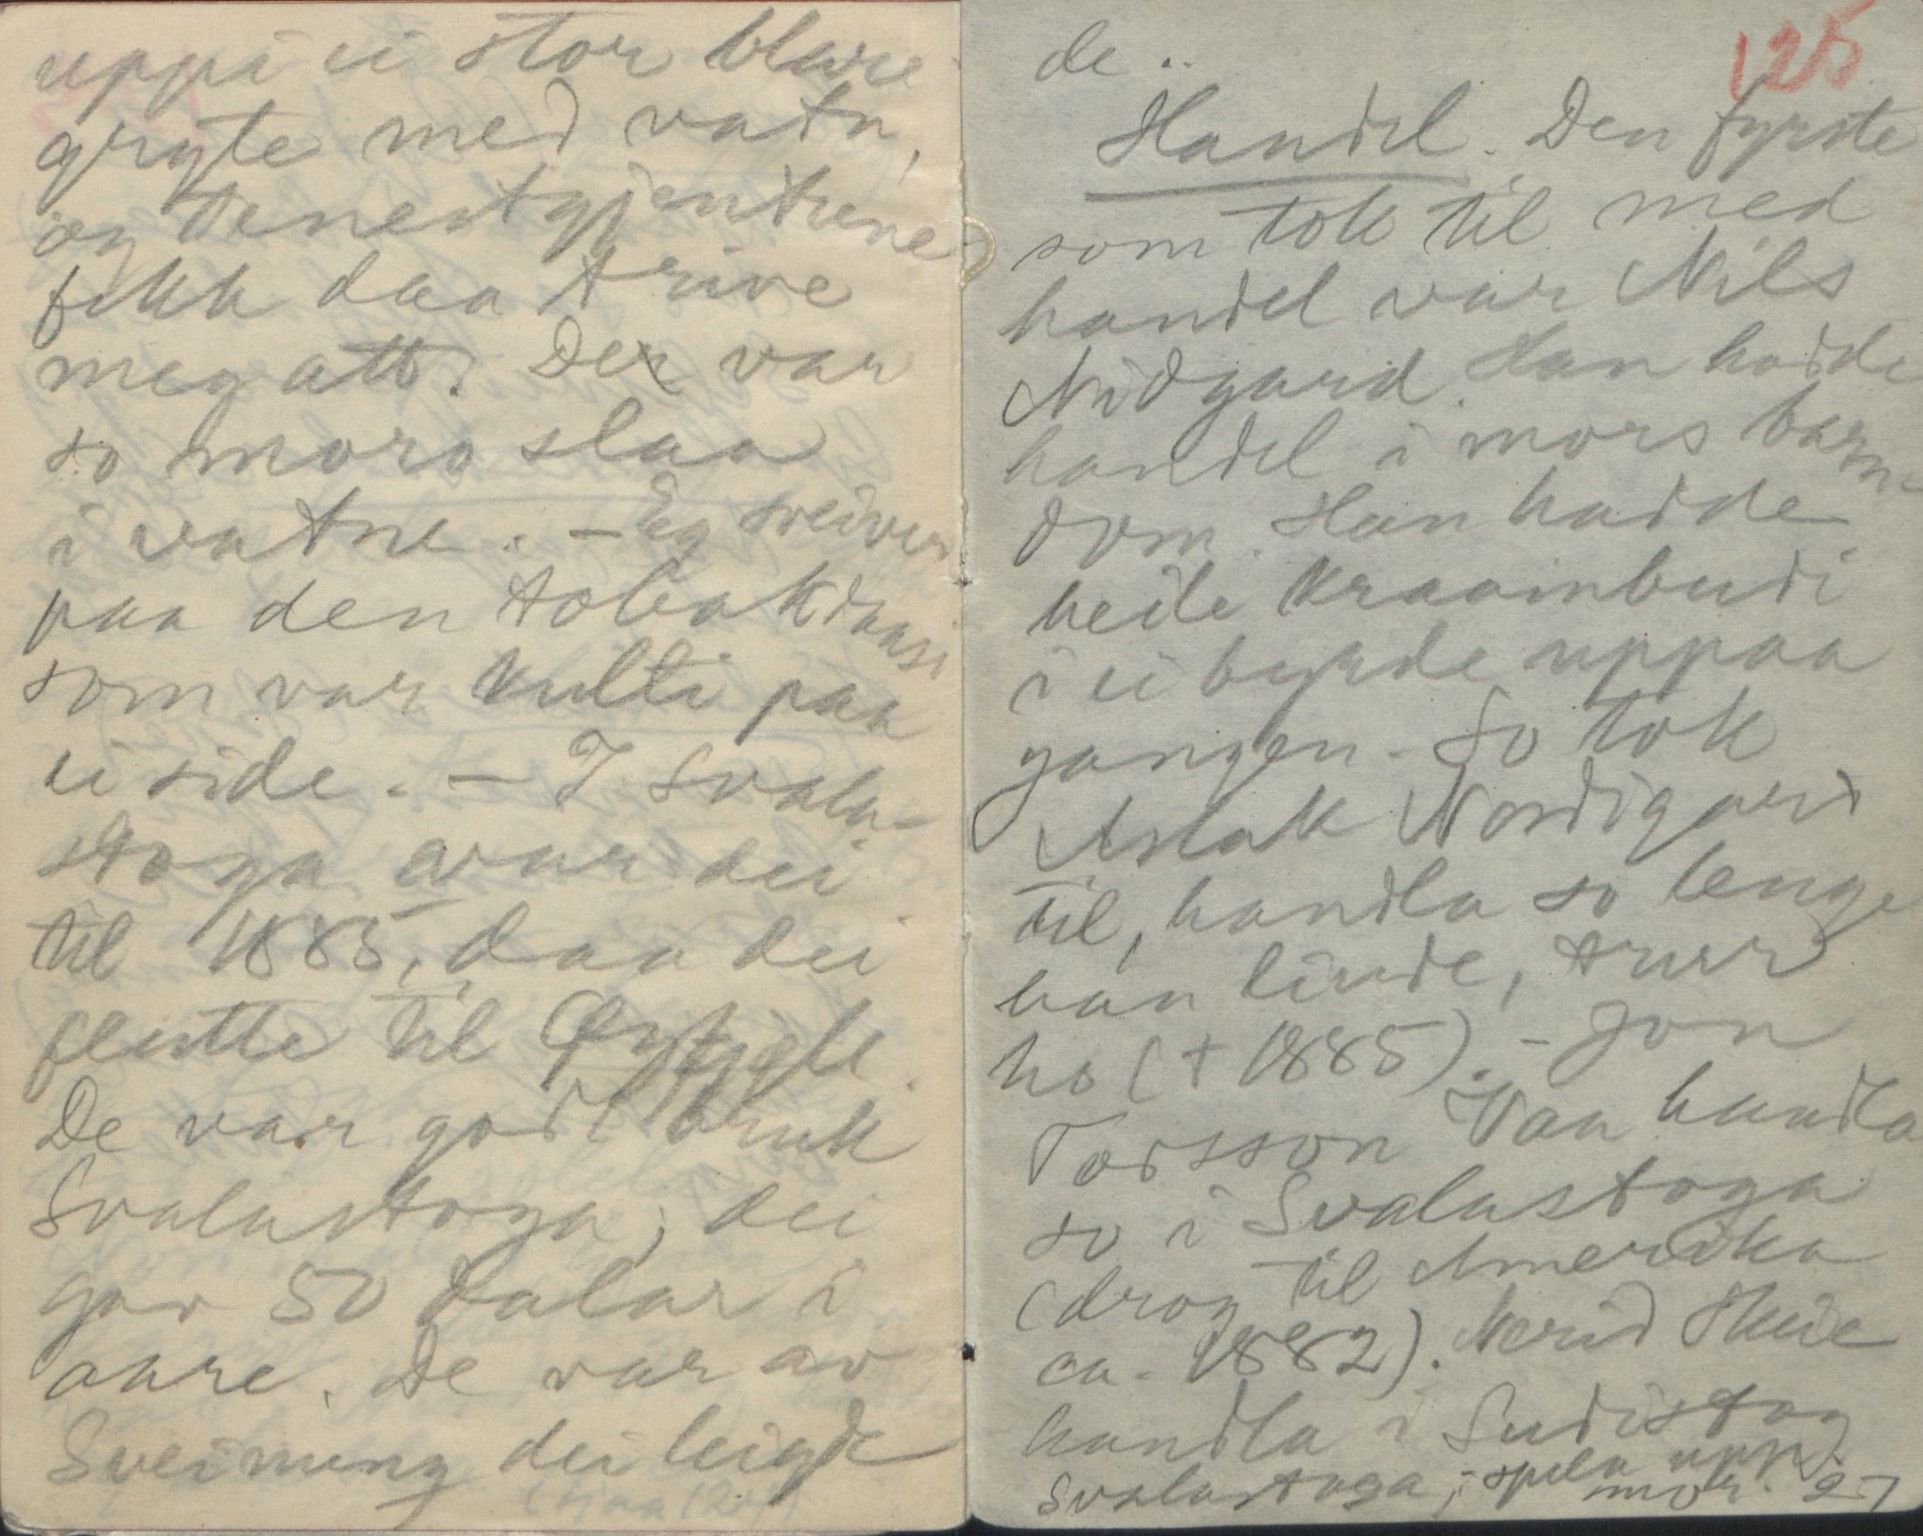 uppi ei stor
gryte med vatn,
og tenestgjentune
fekk daa trive
meg att. De var
so moro slaa
i vatne. – Eg sveiver
paa den tobakdaasi
som var kulti paa
ei side. – I Svala-
stoga var dei
til 1885, daa dei
flutte til Øygjili.
De var godt bruk
Svalastoga, dei
gav 50 dalar i
aare. De var av
Sveinung dei leigde
de..
125
Handel. Den fyrste
som tok til med
handel var Nils
Midgard. Han hadde
handel i mors barn-
dom. Han hadde
heile kraambudi
i ei byrde uppaa
gangen. So tok
Aslak Nordigard
til, handla so lenge
han livde, trur
ho († 1885). – Jon
Torsson Vaa handla
so i Svalastoga
(drog til Amerika
ca. 1882). Nerid Skeie
handla i Sudistog
Svalastoga, spela upp.
mor. 27